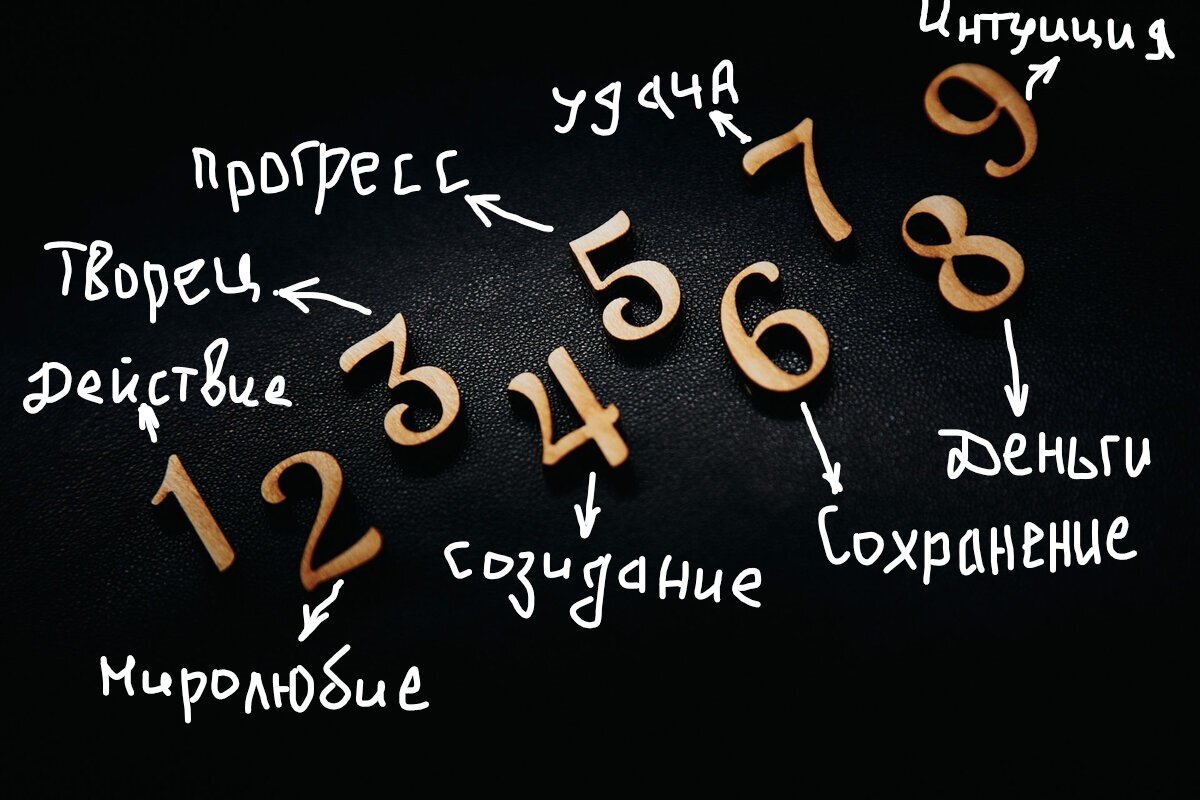 Интуиция
удача
9
прогресс
7
Творец
5
8
Действие
3
6
4
Деньги
1
2
Сохранение
созидание
Миролюбие